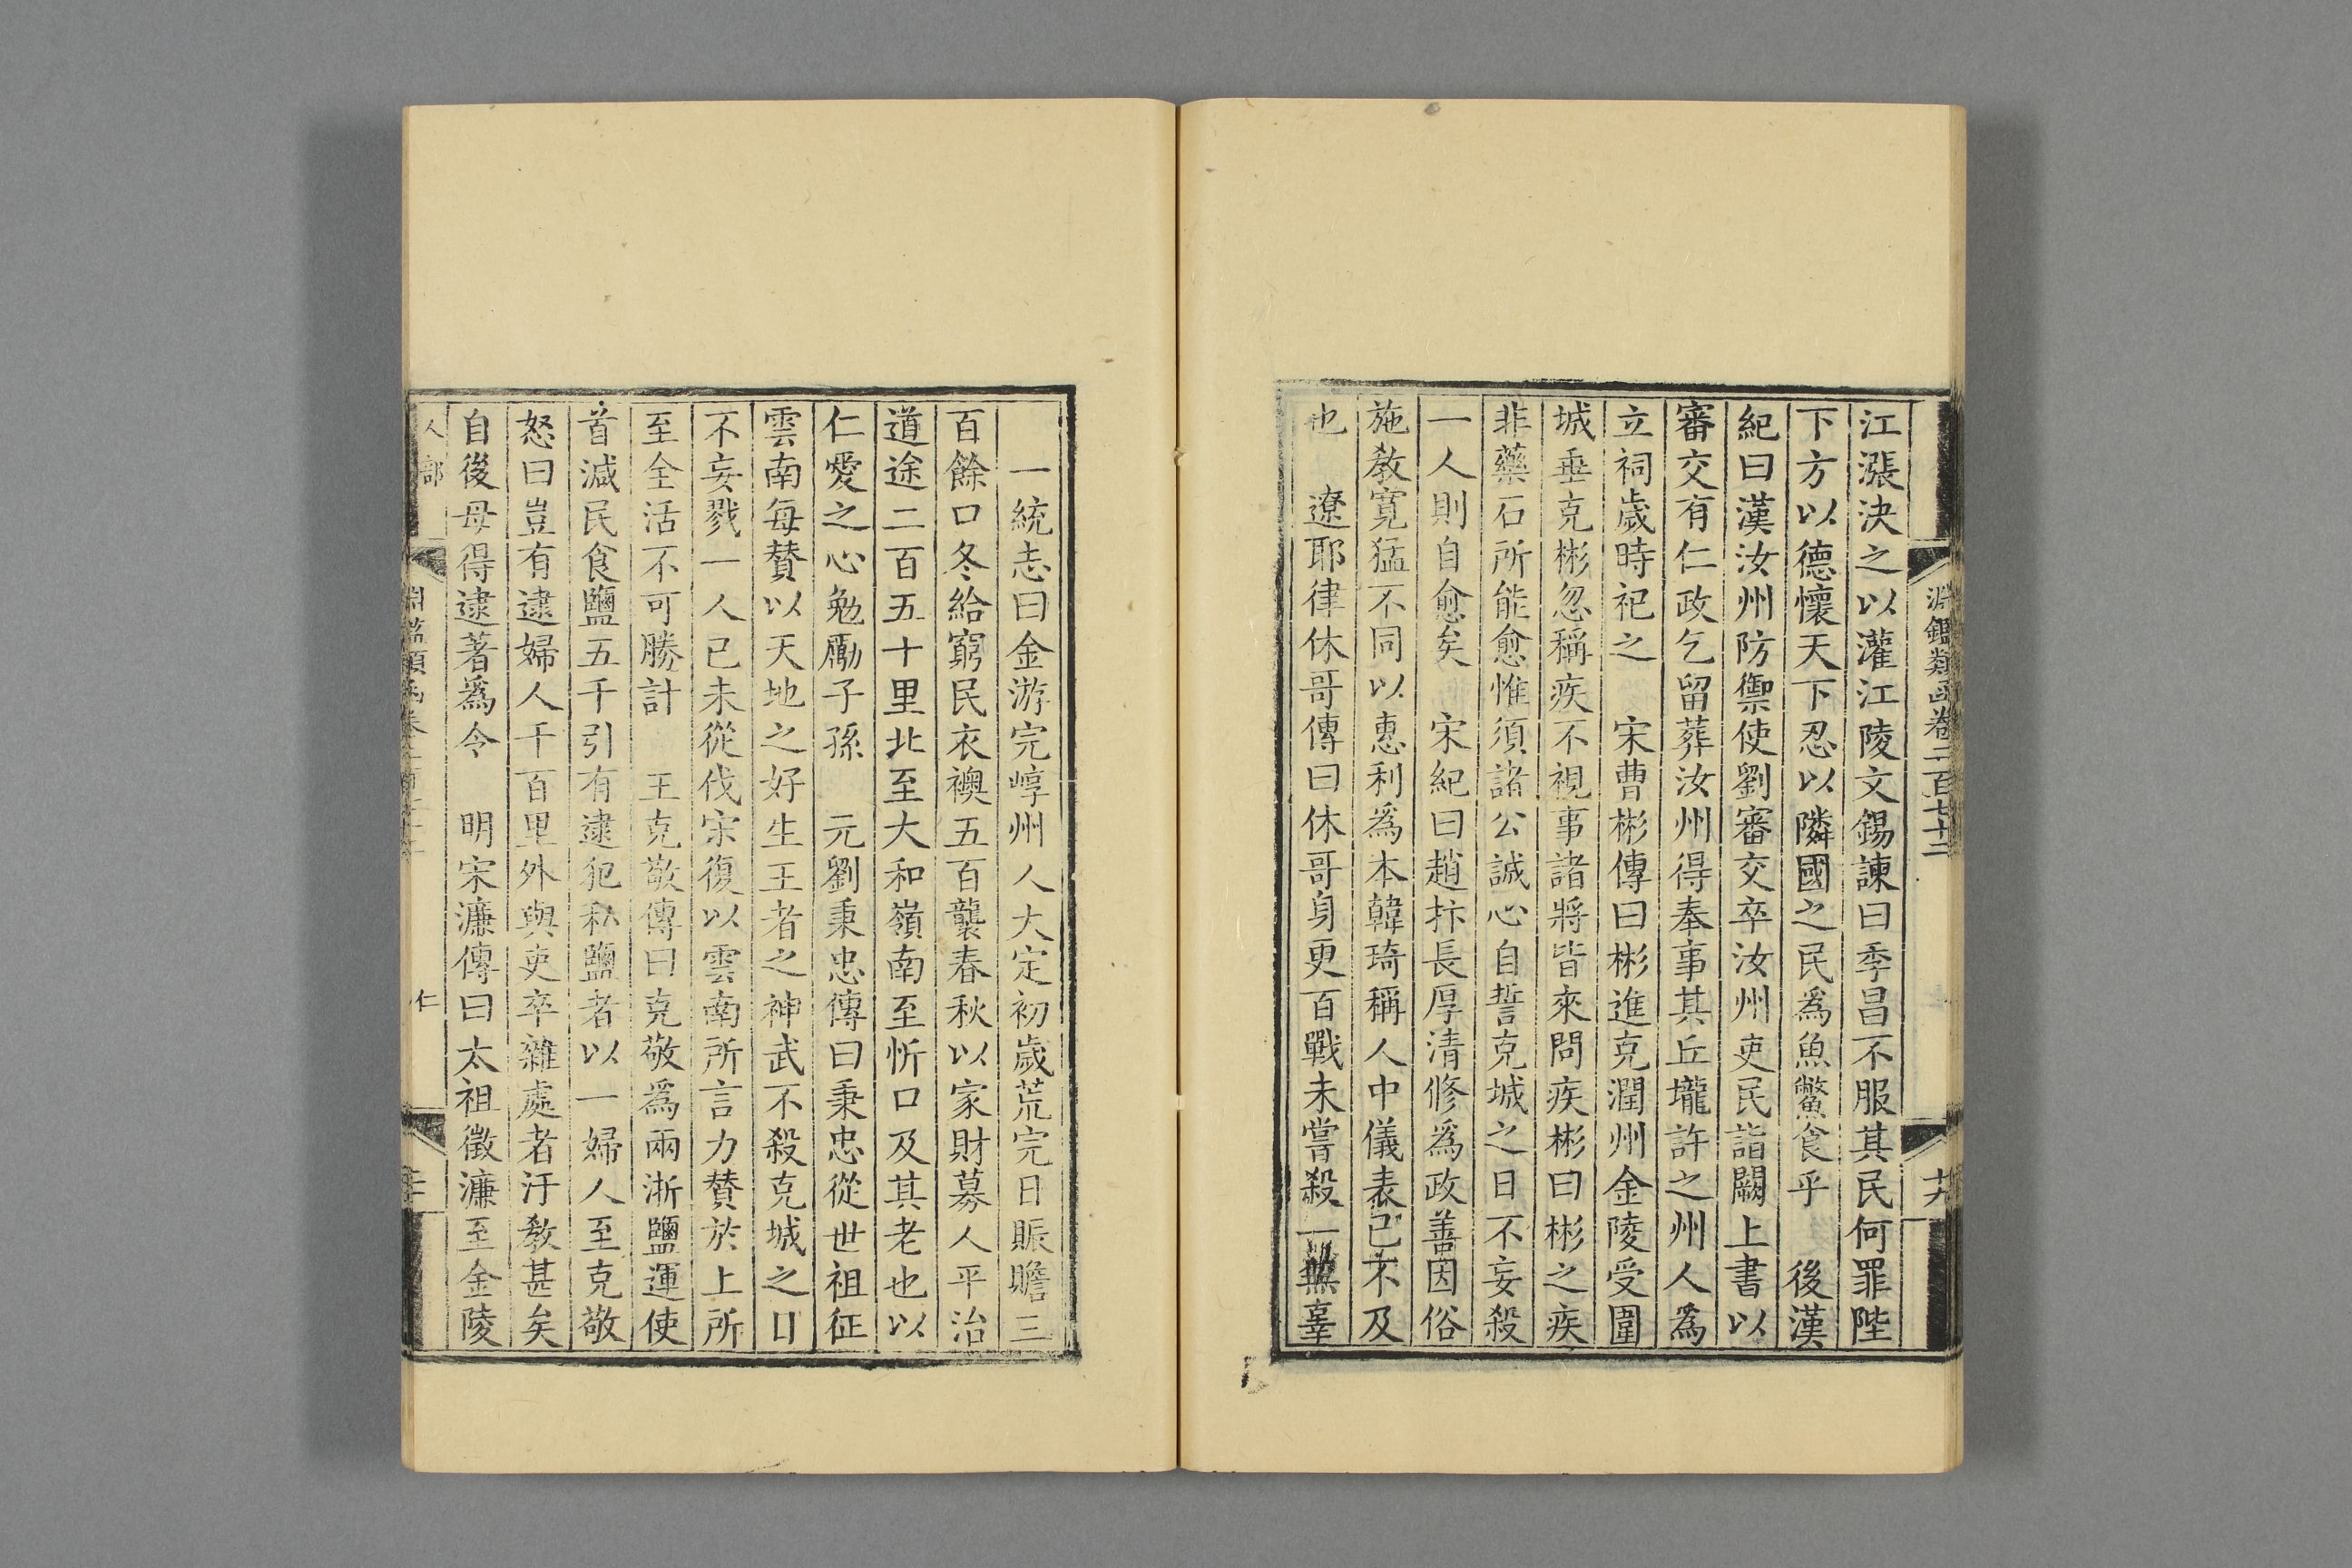 淵鑑類函卷二百七十二
十九
江漲決之以灌江陵文錫諫曰季昌不服其民何罪陛
下方以德懷天下忍以隣國之民爲魚鱉食乎　後漢
紀曰漢汝州防禦使劉審交卒汝州吏民詣闕上書以
審交有仁政乞留葬汝州得奉事其丘壠許之州人爲
立祠歲時祀之　宋曹彬傳曰彬進克潤州金陵受圍
城垂克彬忽稱疾不視事諸將皆來問疾彬曰彬之疾
非藥石所能愈惟須諸公誠心自誓克城之日不妄殺
一人則自愈矣　宋紀曰趙抃長厚清修爲政善因俗
施敎寬猛不同以惠利爲本韓琦稱人中儀表已不及
也　遼耶律休哥傳曰休哥身更百戰未嘗殺一無辜
一統志曰金游完崞州人大定初歲荒完日賑贍三
百餘口冬給窮民衣襖五百襲春秋以家財募人平治
道途二百五十里北至大和嶺南至忻口及其老也以
仁愛之心勉勵子孫　元劉秉忠傳曰秉忠從世祖征
雲南每賛以天地之好生王者之神武不殺克城之日
不妄戮一人已未從伐宋復以雲南所言力賛於上所
至全活不可勝計　王克敬傳曰克敬爲兩浙鹽運使
首減民食鹽五千引有逮犯私鹽者以一婦人至克敬
怒曰豈有逮婦人千百里外與吏卒雜處者汙敎甚矣
自後毋得逮著爲令　明宋濂傳曰太祖徵濂至金陵
人部
仁